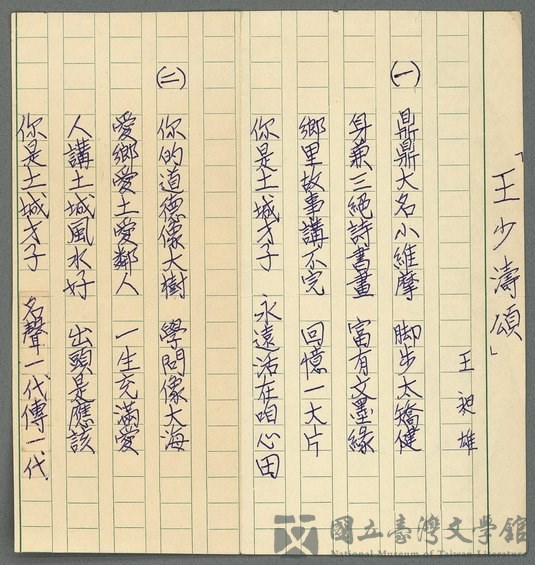 「王少濤頌」
王昶雄
(一)
鼎鼎大名小維摩 脚步太矯健
身兼三絕詩書畫 富有文墨緣
鄉里故事講不完 回憶一大片
你是土城才子 永遠活在咱心田
(二)
你的道德像大樹 學問像大海
愛鄉愛土愛鄰人 一生充滿愛
人講土城風水好 出頭是應該
你是土城才子 名聲一代傳一代
國立臺灣文學館
National Museum of Taiwan Literature